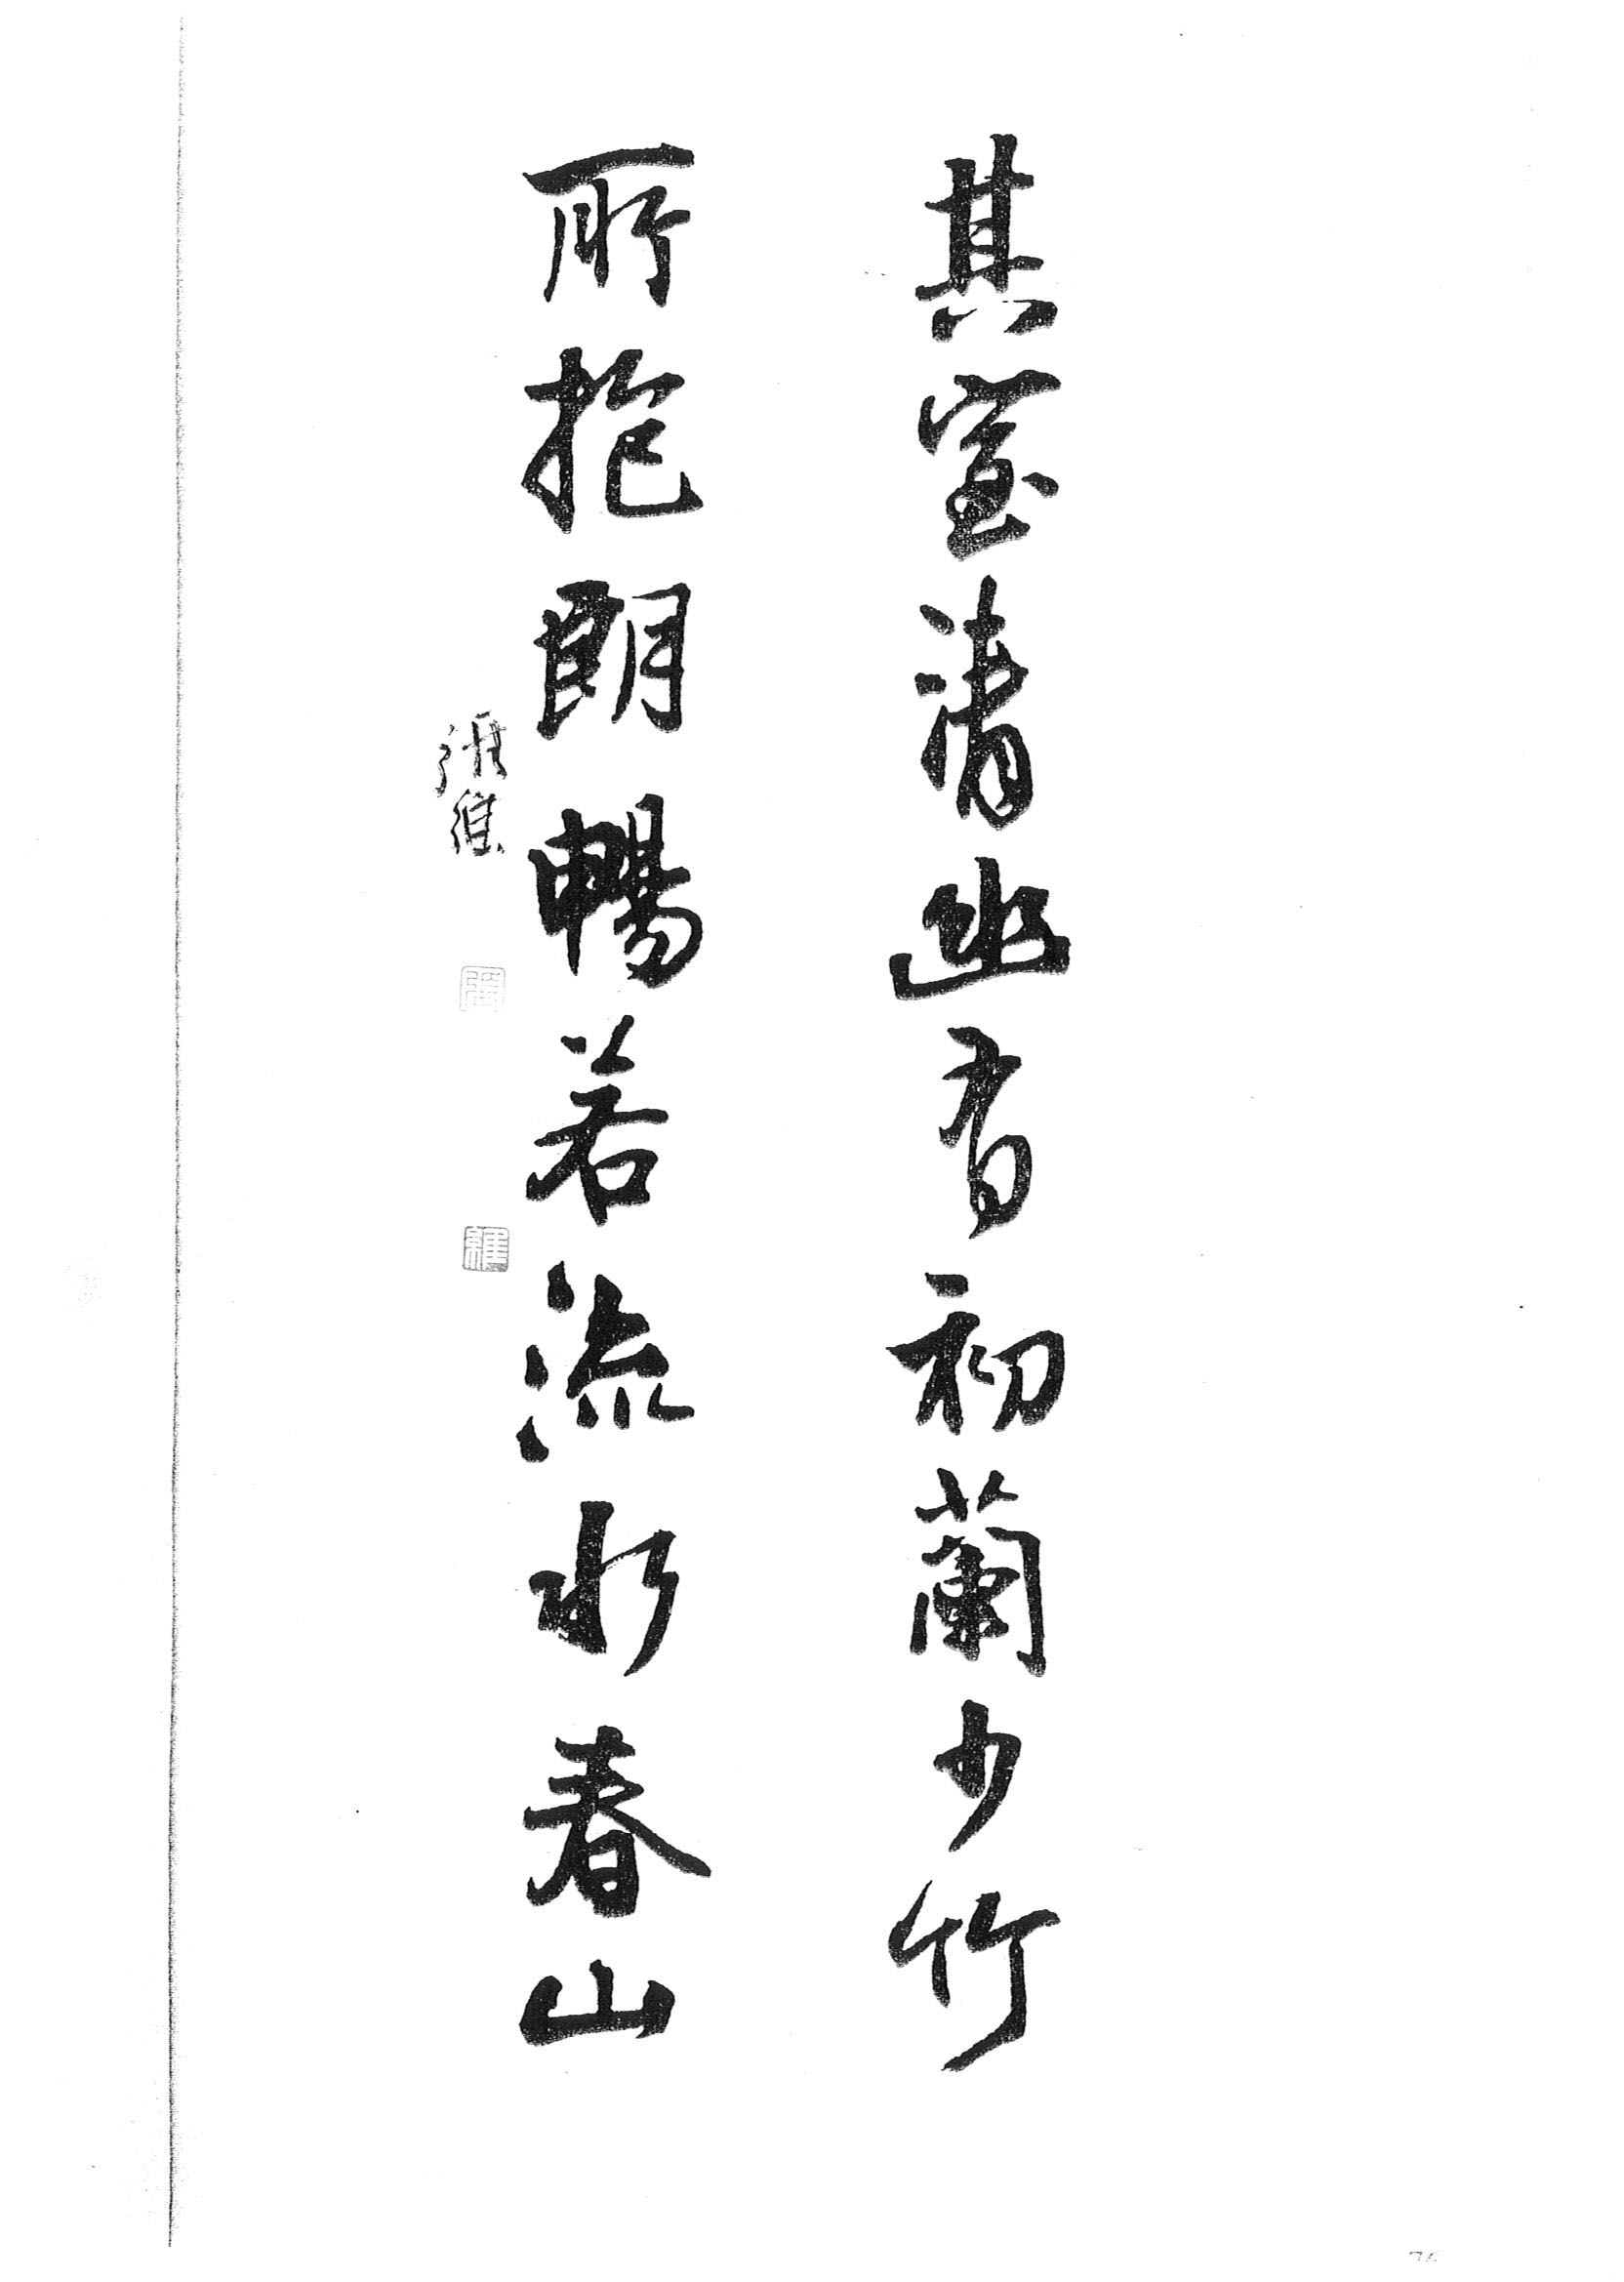 其室清幽有初蘭少竹
所抱朗暢若流水春山
張維
張
維